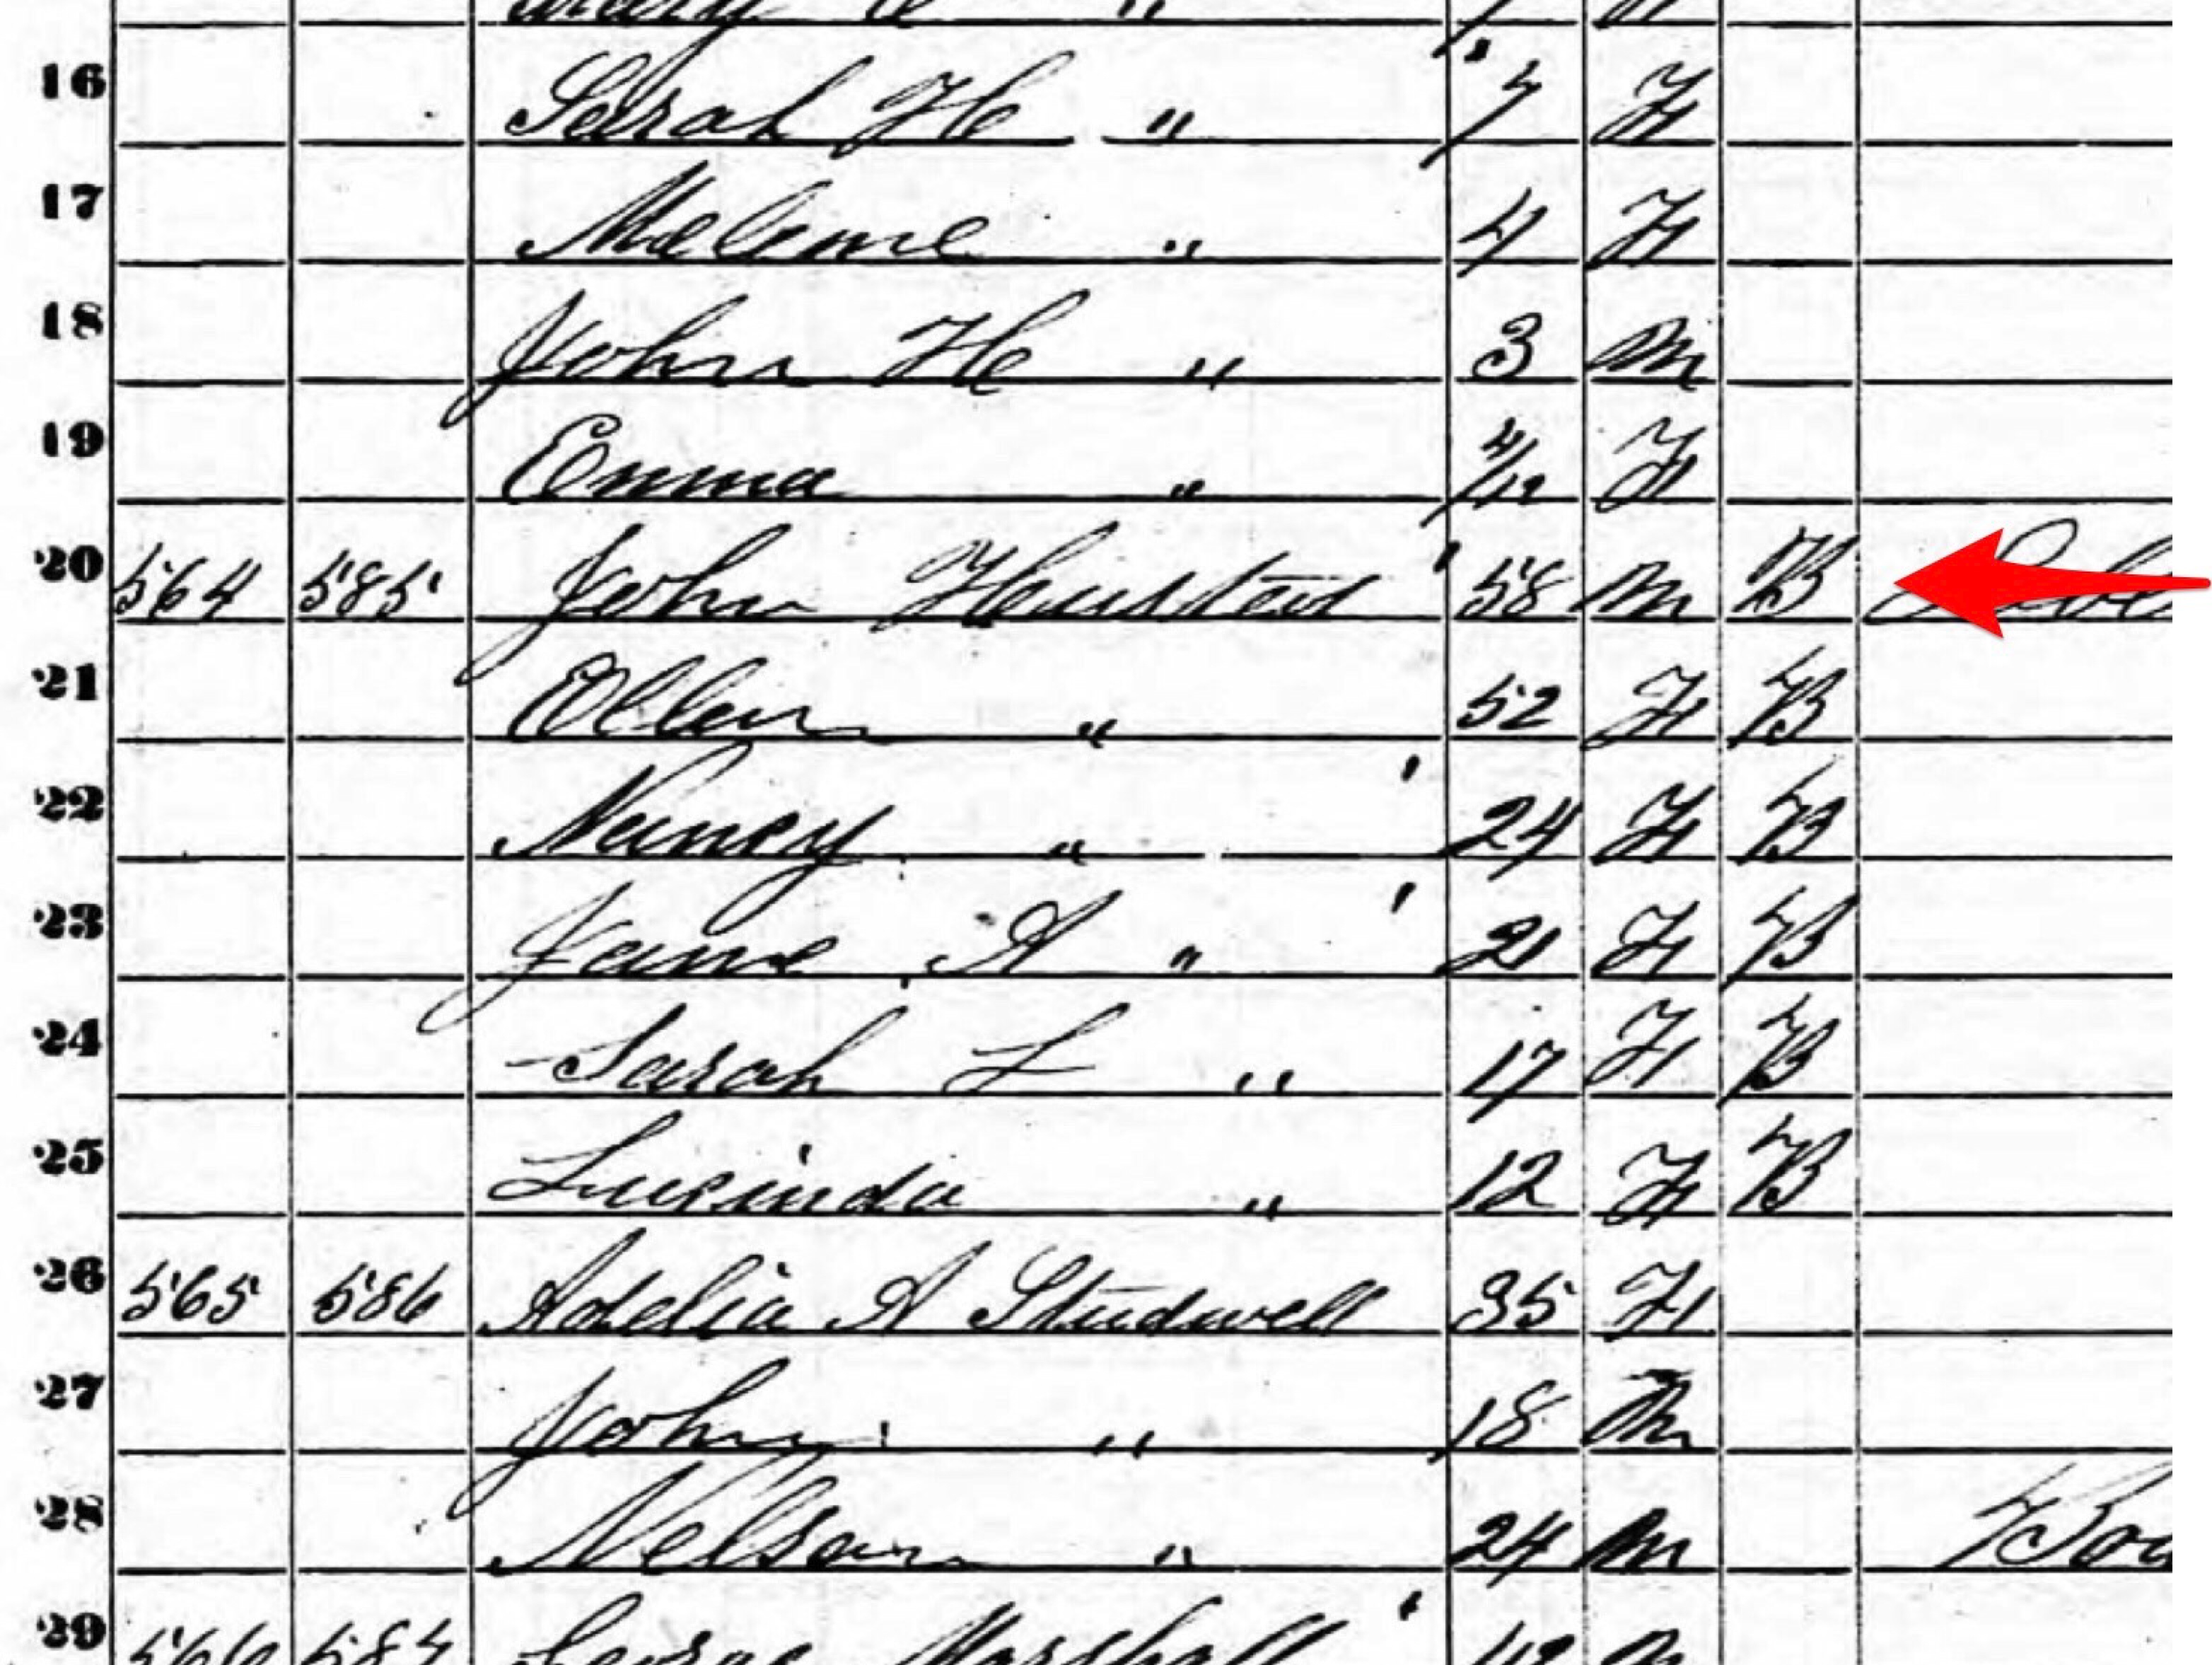 16 Sarah H " 7 F
17 Melene " 4 F
18 John H " 3 M
19 Emma " 4/12 F
20 564 585 John Hensted 58 M B
21 Ellen " 52 F B
22 Nancy " 24 F B
23 Jane A " 21 F B
24 Sarah L " 17 F B
25 Lucinda " 12 F B
26 565 586 Adelia A Studwell 35 F
27 John " 18 M
28 Nelson " 24 M
29 George Marshall M